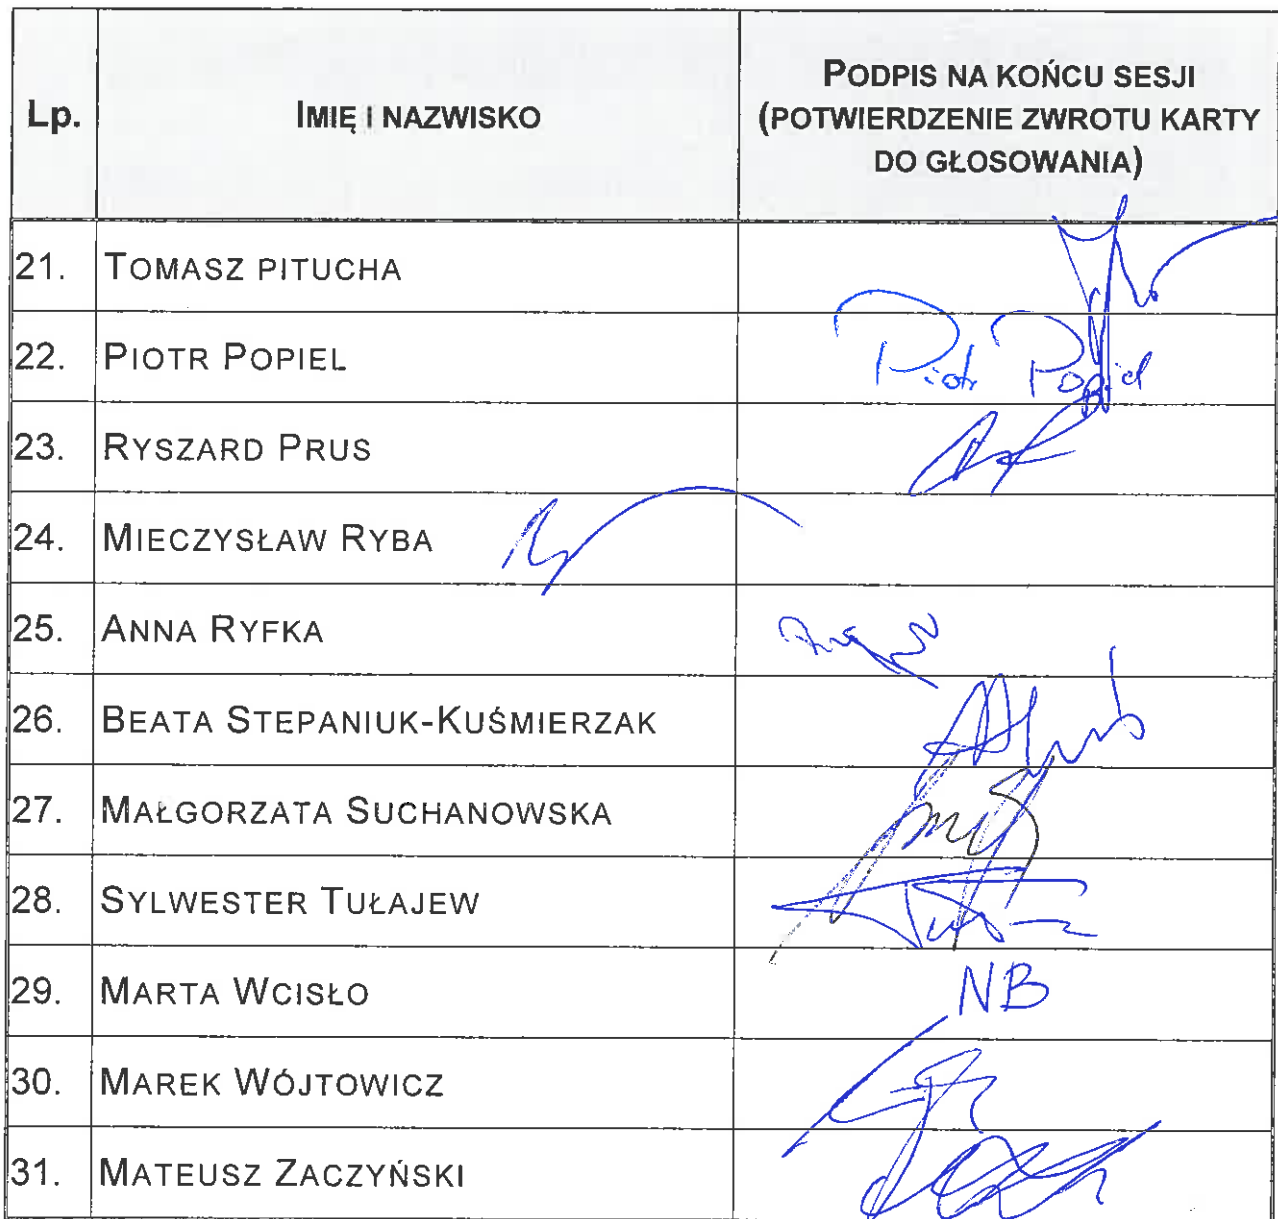 Lp.
IMIĘ I NAZWISKO
PODPIS NA KOŃCU SESJI
(POTWIERDZENIE ZWROTU KARTY
DO GŁOSOWANIA)
21. TOMASZ PITUCHA
22. PIOTR POPIEL Piotr Popiel
23. RYSZARD PRUS
24. MIECZYSŁAW RYBA
25. ANNA RYFKA
26. BEATA STEPANIUK-KUŚMIERZAK
27. MAŁGORZATA SUCHANOWSKA
28. SYLWESTER TUŁAJEW
29. MARTA WCISŁO NB
30. MAREK WÓJTOWICZ
31. MATEUSZ ZACZYŃSKI